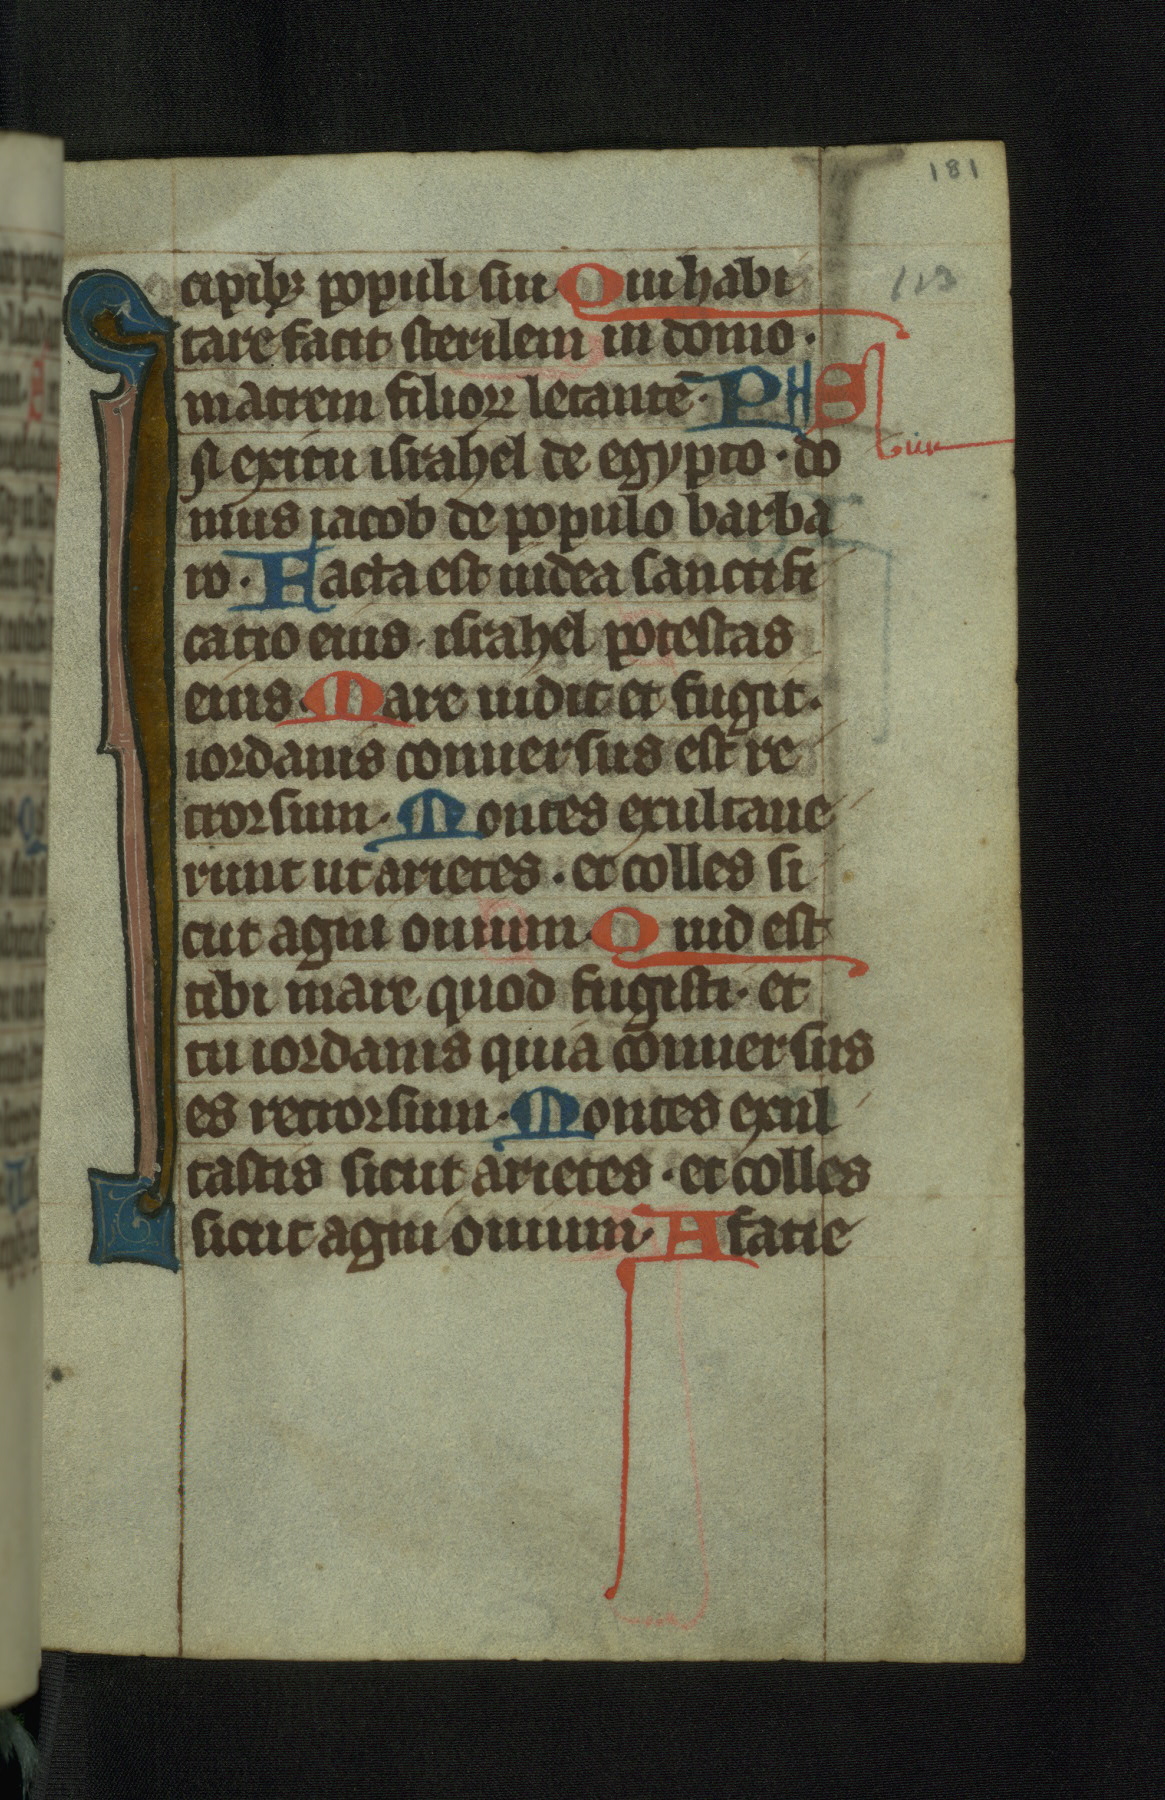 181
cipibꝫ populi sui Qui habi
113
tare facit sterilem in domo ·
matrem filioꝝ letantē · PHS
N exitu israhel de egypto · do
mus iacob de populo barba
ro · Facta est iudea sanctifi
catio eius · israhel potestas
eius · Mare uidit et fugit ·
iordanis conuersus est re
trorsum · Montes exultaue
runt ut arietes · et colles si
cut agni ouium · Quid est
tibi mare quod fugisti · et
tu iordanis quia cōuuersus
es retrorsum · Montes exul
tastis sicut arietes · et colles
sicut agni ouium · A facie